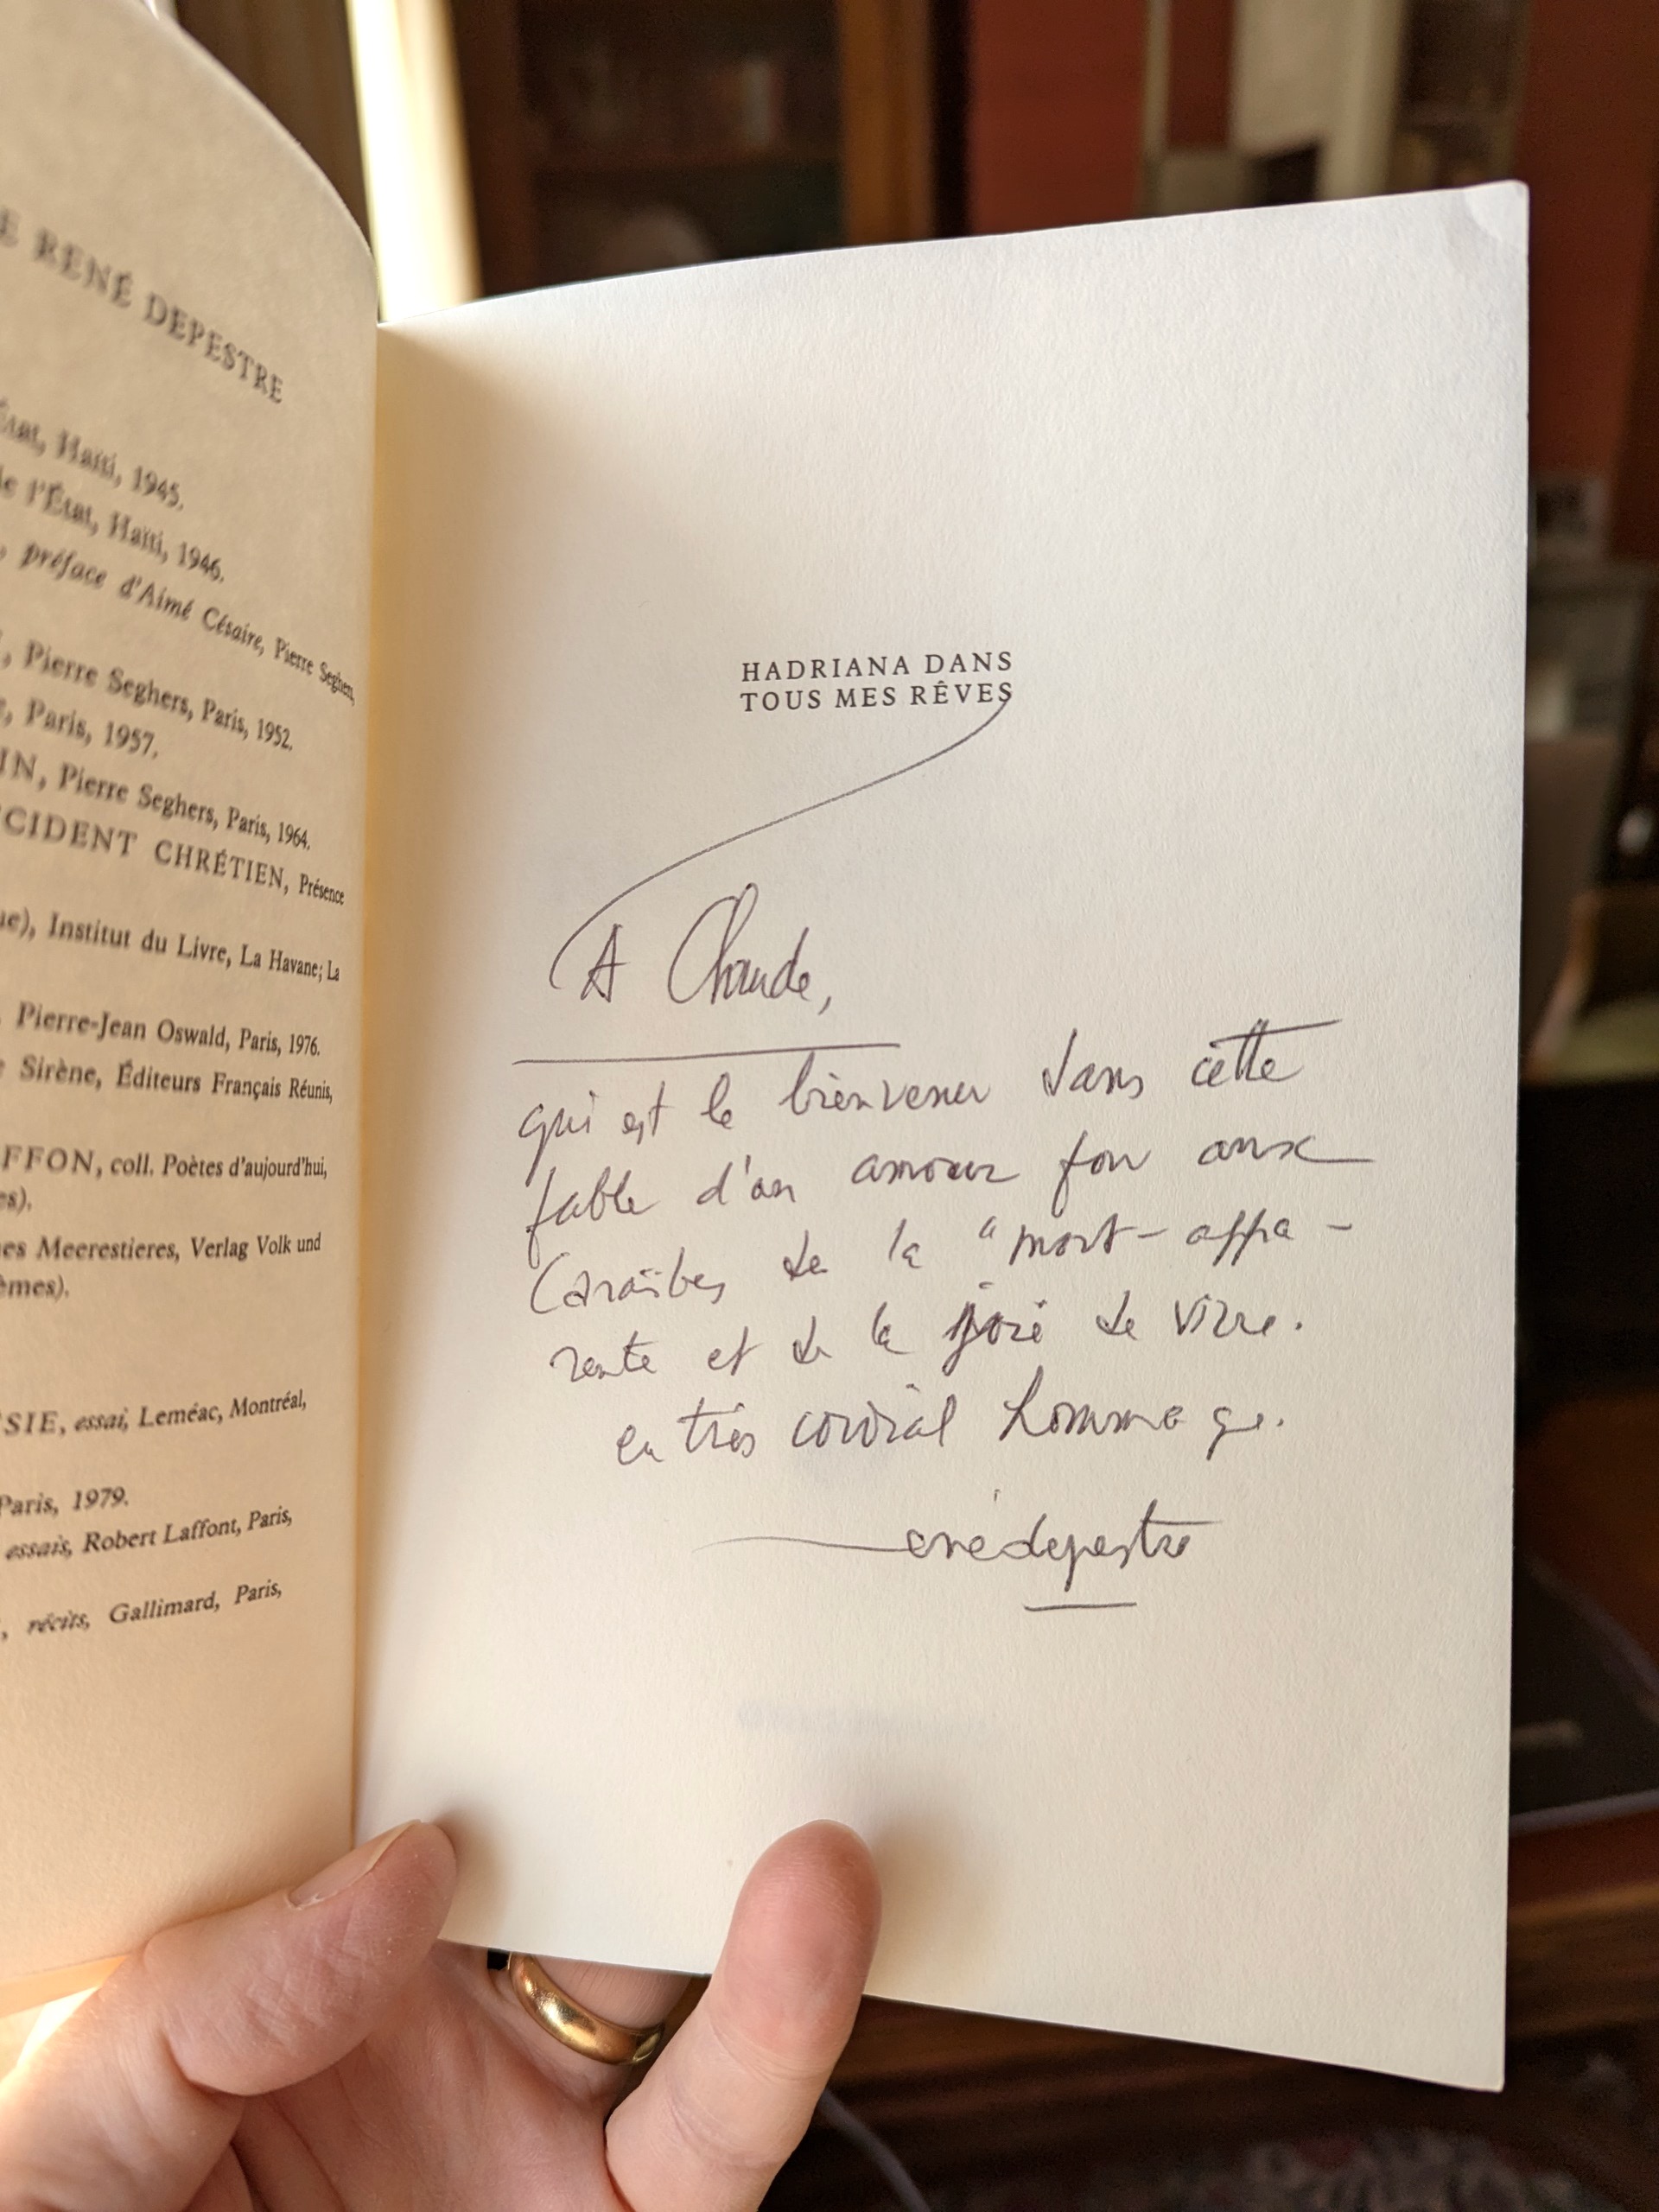 E RENÉ DEPESTRE
État, Haïti, 1945.
de l'État, Haïti, 1946.
, préface d'Aimé Césaire, Pierre Seghers,
, Pierre Seghers, Paris, 1952.
, Paris, 1957.
IN, Pierre Seghers, Paris, 1964.
CCIDENT CHRÉTIEN, Présence
ue), Institut du Livre, La Havane; La
, Pierre-Jean Oswald, Paris, 1976.
Sirène, Éditeurs Français Réunis,
FFON, coll. Poètes d'aujourd'hui,
es).
es Meerestieres, Verlag Volk und
èmes).
SIE, essai, Leméac, Montréal,
Paris, 1979.
essais, Robert Laffont, Paris,
, récits, Gallimard, Paris,
HADRIANA DANS
TOUS MES RÊVES
A Claude,
qui est le bienvenu dans cette
fable d'un amour fou aux
Caraïbes de la "mort-appa-
rente et de la joie de vivre.
en très cordial hommage.
renédepestre